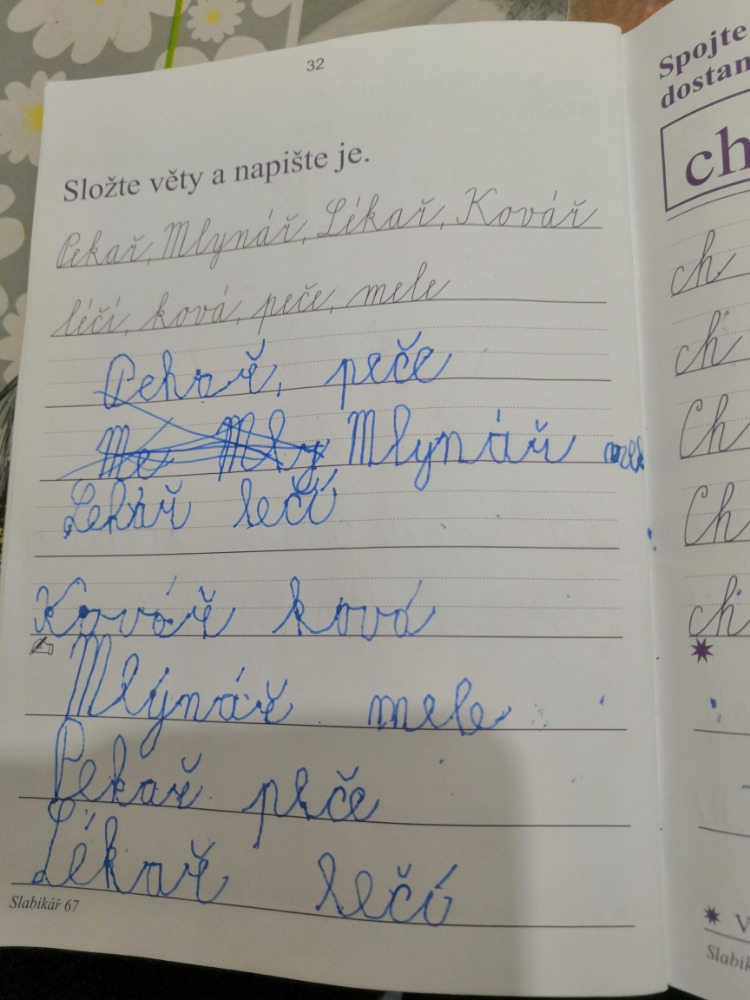 32
Složte věty a napište je.
Pekař, Mlynář, Lékař, Kovář
léčí, ková, peče, mele
Pekař, peče
Me Mly Mlynář mele
Lekář lečí
Kovář ková
Mlýnář mele
Pekař peče
Lékař lečí
Slabikář 67
Spojte
dostan
ch
ch
ch
Ch
Ch
ch
V
Slabik